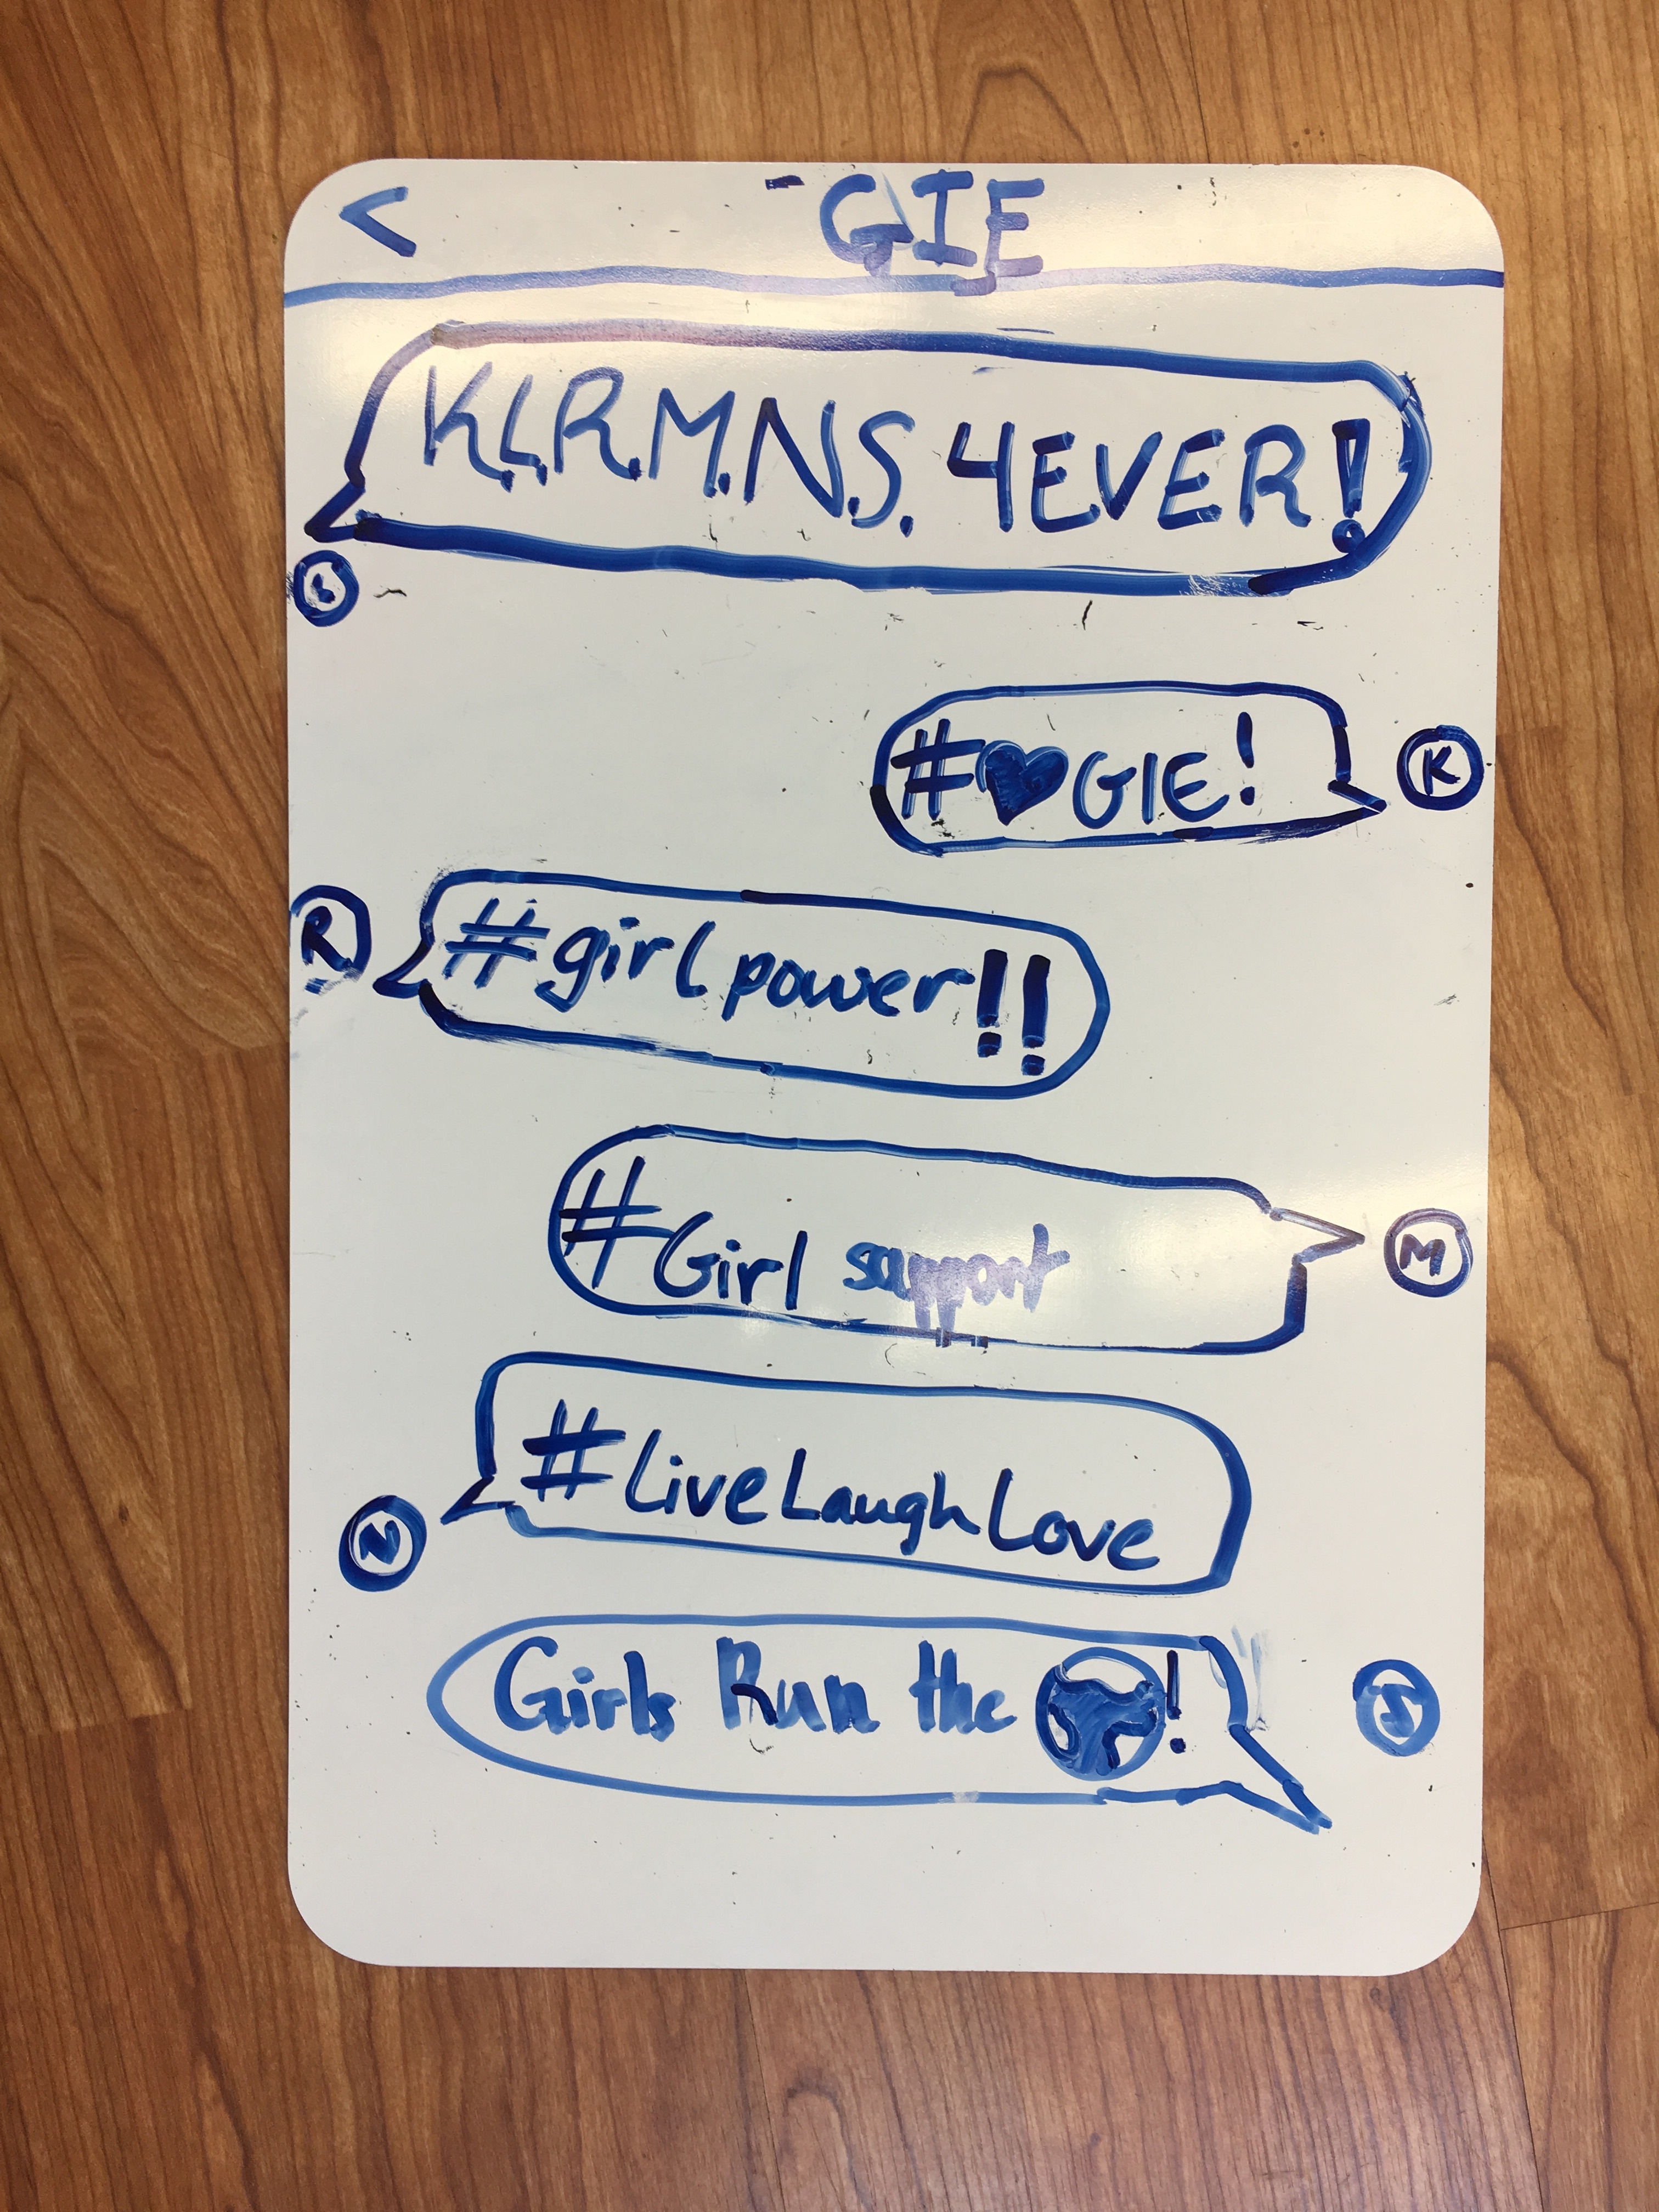 < GIE
K.L.R.M.N.S. 4EVER!
L
#♥GIE! K
R #girlpower!!
#Girl support M
#LiveLaughLove
N
Girls Run the 🌍! S